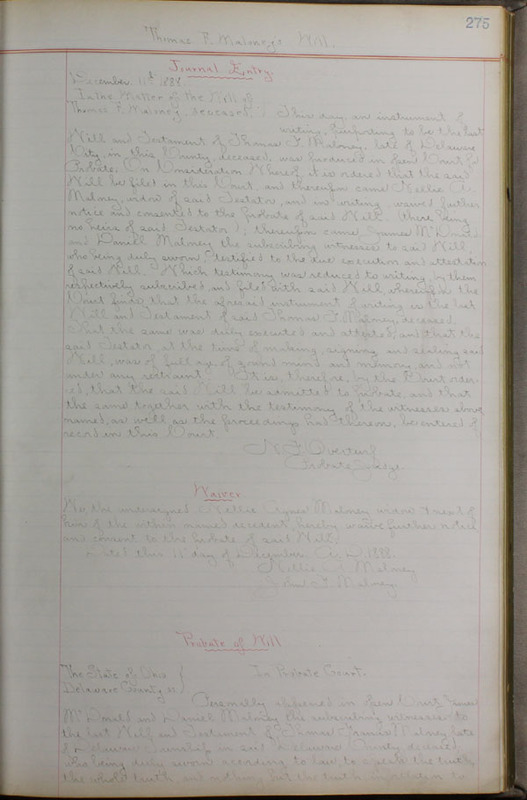 275
Thomas F. Maloney's Will.
Journal Entry
December 11th 1888.
In the Matter of the Will of
Thomas F. Maloney, deceased. This day, an instrument of
writing, purporting to be the last
Will and Testament of Thomas F. Maloney, late of Delaware
City, in this County, deceased, was produced in open Court for
Probate. On Consideration Whereof, it is ordered that the said
Will be filed in this Court, and thereupon came Nellie A.
Maloney, widow of said Testator, and in writing, waived further
notice and consented to the Probate of said Will. There being
no heirs of said Testator thereupon came James McDonald
and Daniel Maloney the subscribing witnesses to said Will,
who being duly sworn, testified to the due execution and attestation
of said Will. Which testimony was reduced to writing, by them
respectively subscribed, and filed with said Will, whereupon the
Court finds that the aforesaid instrument of writing is the last
Will and Testament of said Thomas F. Maloney, deceased.
That the same was duly executed and attested, and that the
said Testator at the time of making, signing, and sealing said
Will, was of full age, of sound mind and memory, and not
under any restraint. It is, therefore, by the Court order-
ed, that the said Will be admitted to Probate, and that
the same together with the testimony of the witnesses above
named, as well as the proceedings had thereon, be entered of
record in this Court.
N. F. Overturf
Probate Judge.
Waiver
We the undersigned Nellie Agnes Maloney widow & next of
kin of the within named resident, hereby waive further notice
and consent to the Probate of said Will.
Dated this 11th day of December A. D. 1888.
Nellie A. Maloney
John F. Maloney.
Probate of Will
The State of Ohio
Delaware County ss. In Probate Court.
Personally appeared in open Court, James
McDonald and Daniel Maloney the subscribing witnesses to
the last Will and Testament of Thomas Francis Maloney late
of Delaware Township in said Delaware County deceased,
who being duly sworn according to law to speak the truth,
the whole truth, and nothing but the truth in relation to